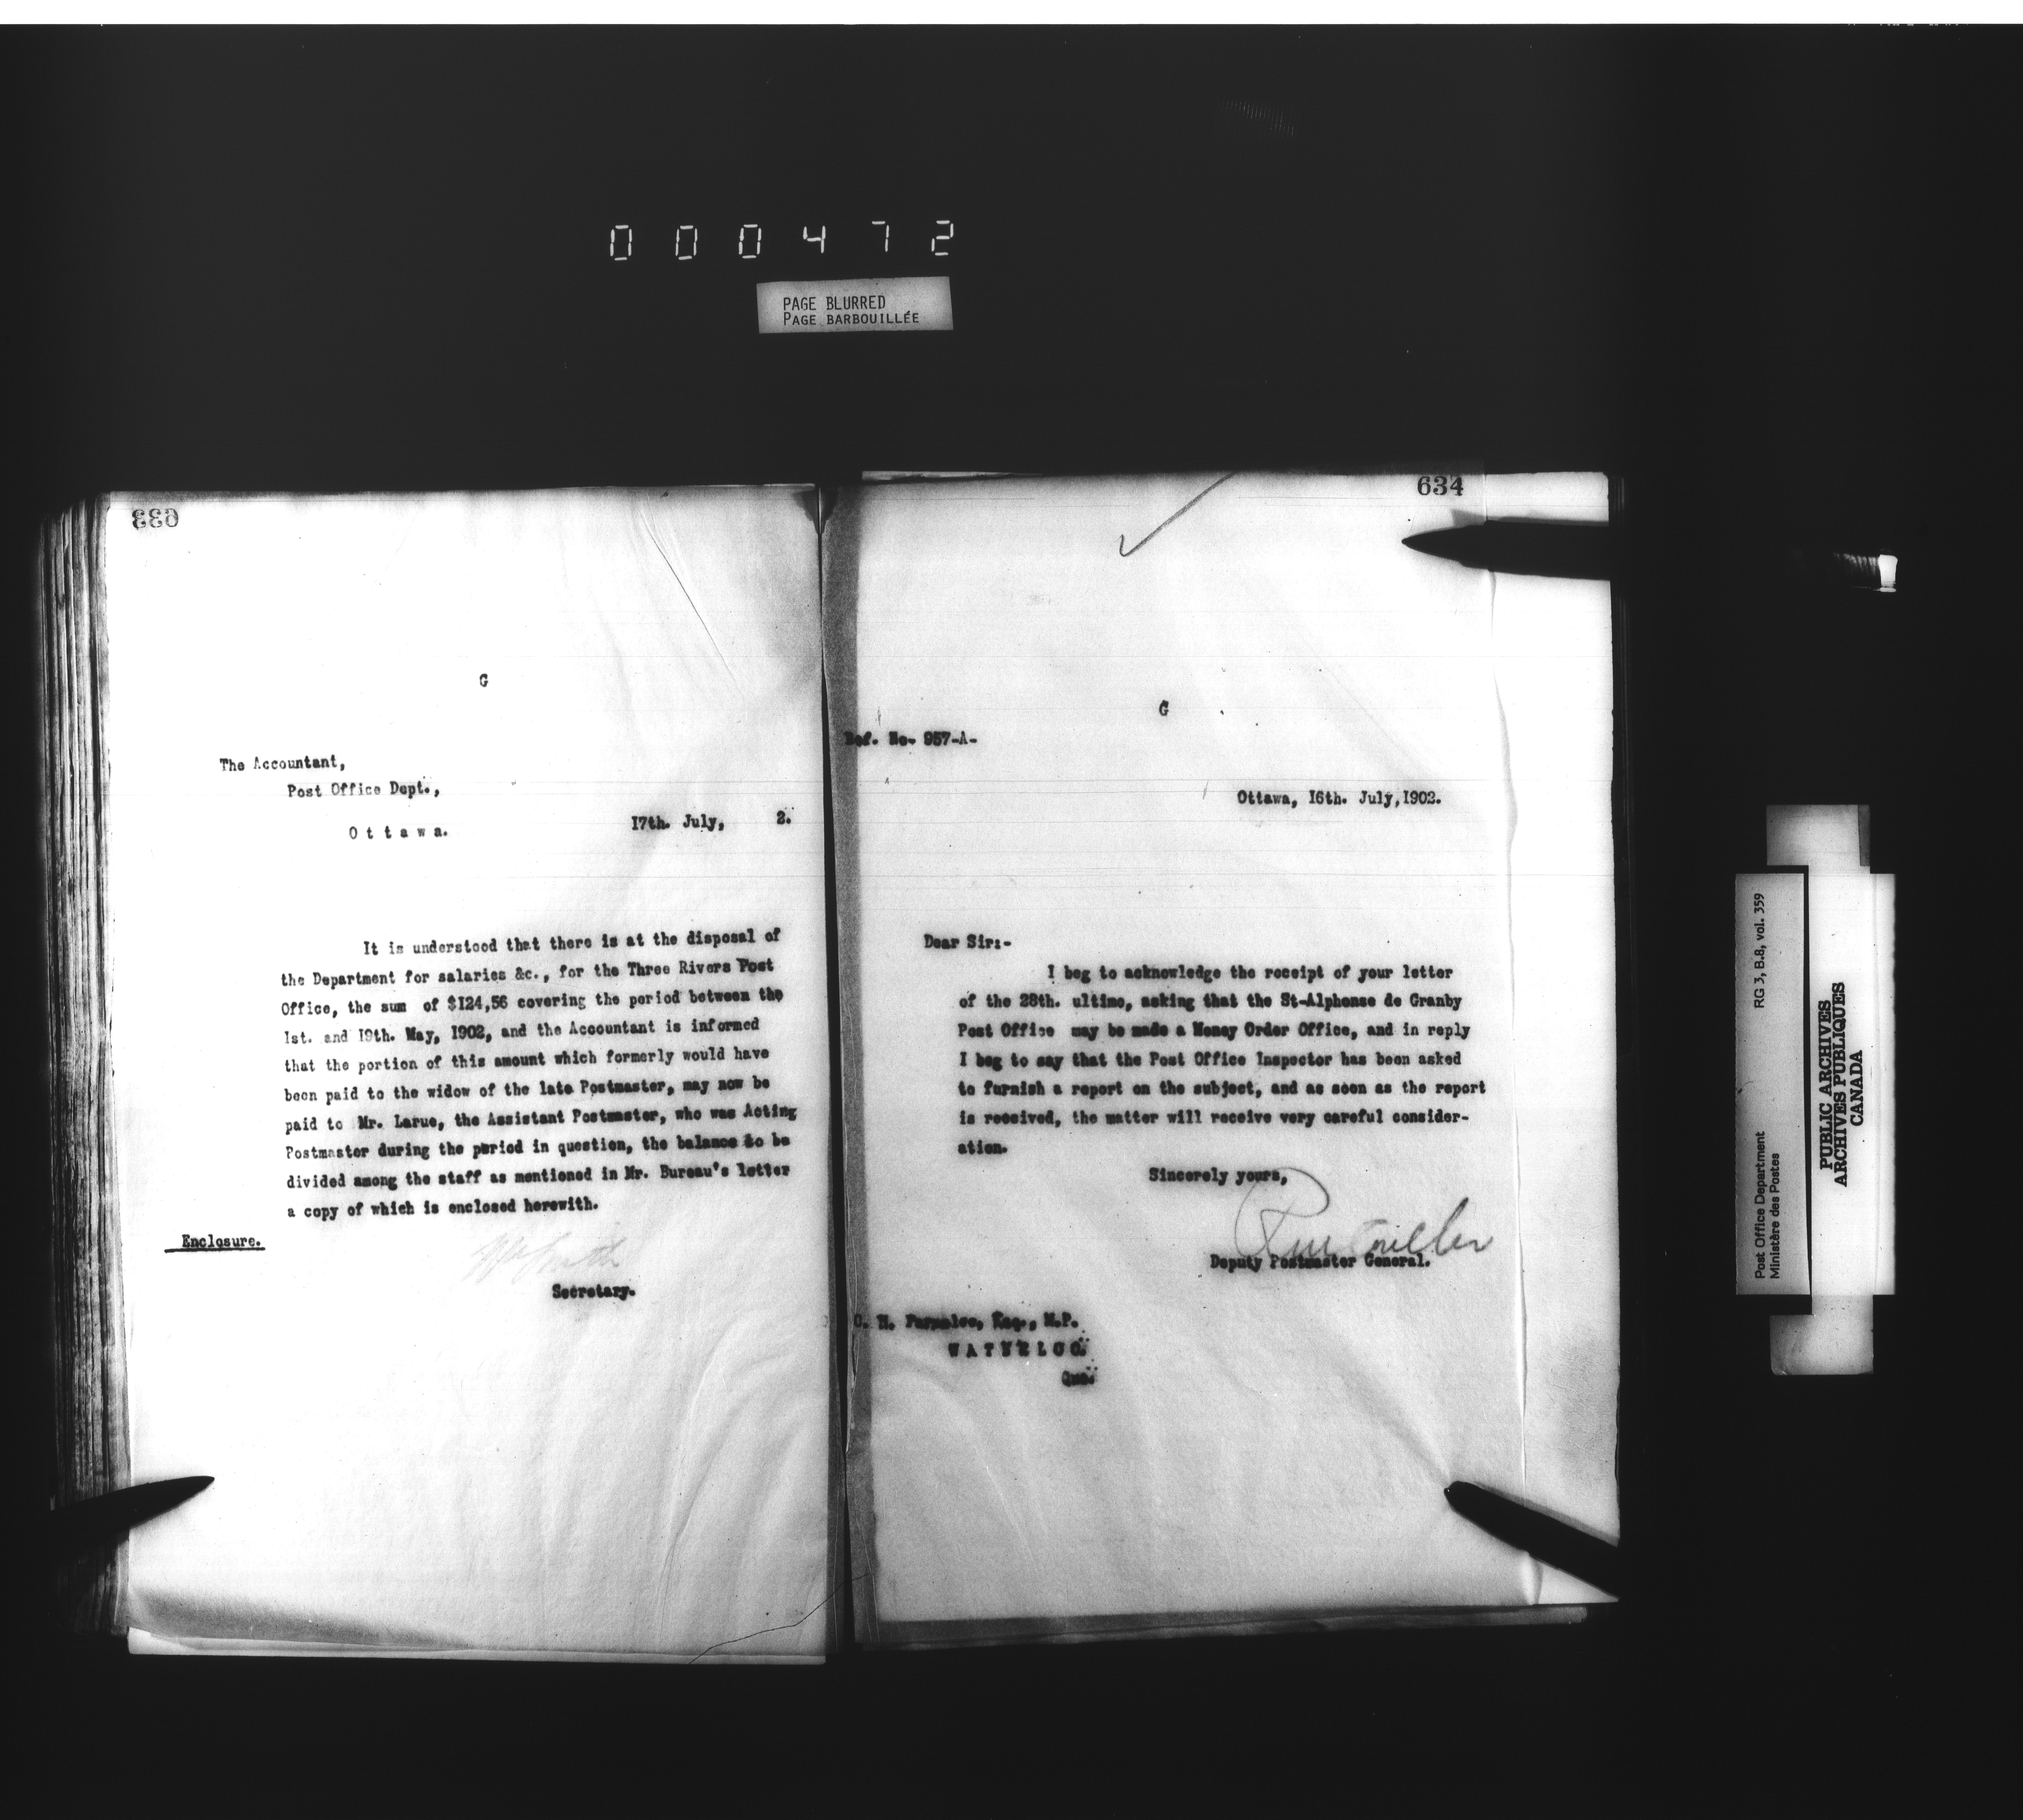 000472
PAGE BLURRED
PAGE BARBOUILLÉE
633
G
The Accountant,
Post Office Dept.,
Ottawa.
17th. July, 2.
It is understood that there is at the disposal of
the Department for salaries &c., for the Three Rivers Post
Office, the sum of $124,56 covering the period between the
1st. and 19th. May, 1902, and the Accountant is informed
that the portion of this amount which formerly would have
been paid to the widow of the late Postmaster, may now be
paid to Mr. Larue, the Assistant Postmaster, who was Acting
Postmaster during the period in question, the balance to be
divided among the staff as mentioned in Mr. Bureau's letter
a copy of which is enclosed herewith.
Enclosure.
Secretary.
634
G
Ref. No. 957-A-
Ottawa, 16th. July, 1902.
Dear Sir:-
I beg to acknowledge the receipt of your letter
of the 28th. ultimo, asking that the St-Alphonse de Granby
Post Office may be made a Money Order Office, and in reply
I beg to say that the Post Office Inspector has been asked
to furnish a report on the subject, and as soon as the report
is received, the matter will receive very careful consider-
ation.
Sincerely yours,
Deputy Postmaster General.
C. H. Parmalee, Esq., M.P.
WATERLOO.
Que.
Post Office Department RG 3, B.8, vol. 359
Ministère des Postes
PUBLIC ARCHIVES
ARCHIVES PUBLIQUES
CANADA